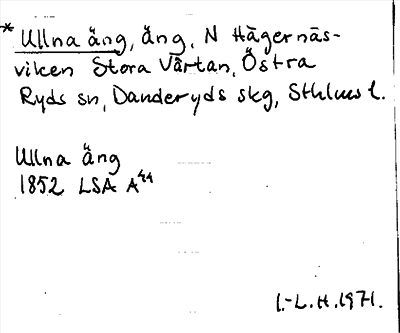 * Ullna äng, äng, N Hägernäs-
viken Stora Värtan, Östra
Ryds sn, Danderyds skg, Sthlms l.
Ullna äng
1852 LSA A44
I.-L.H.1971.